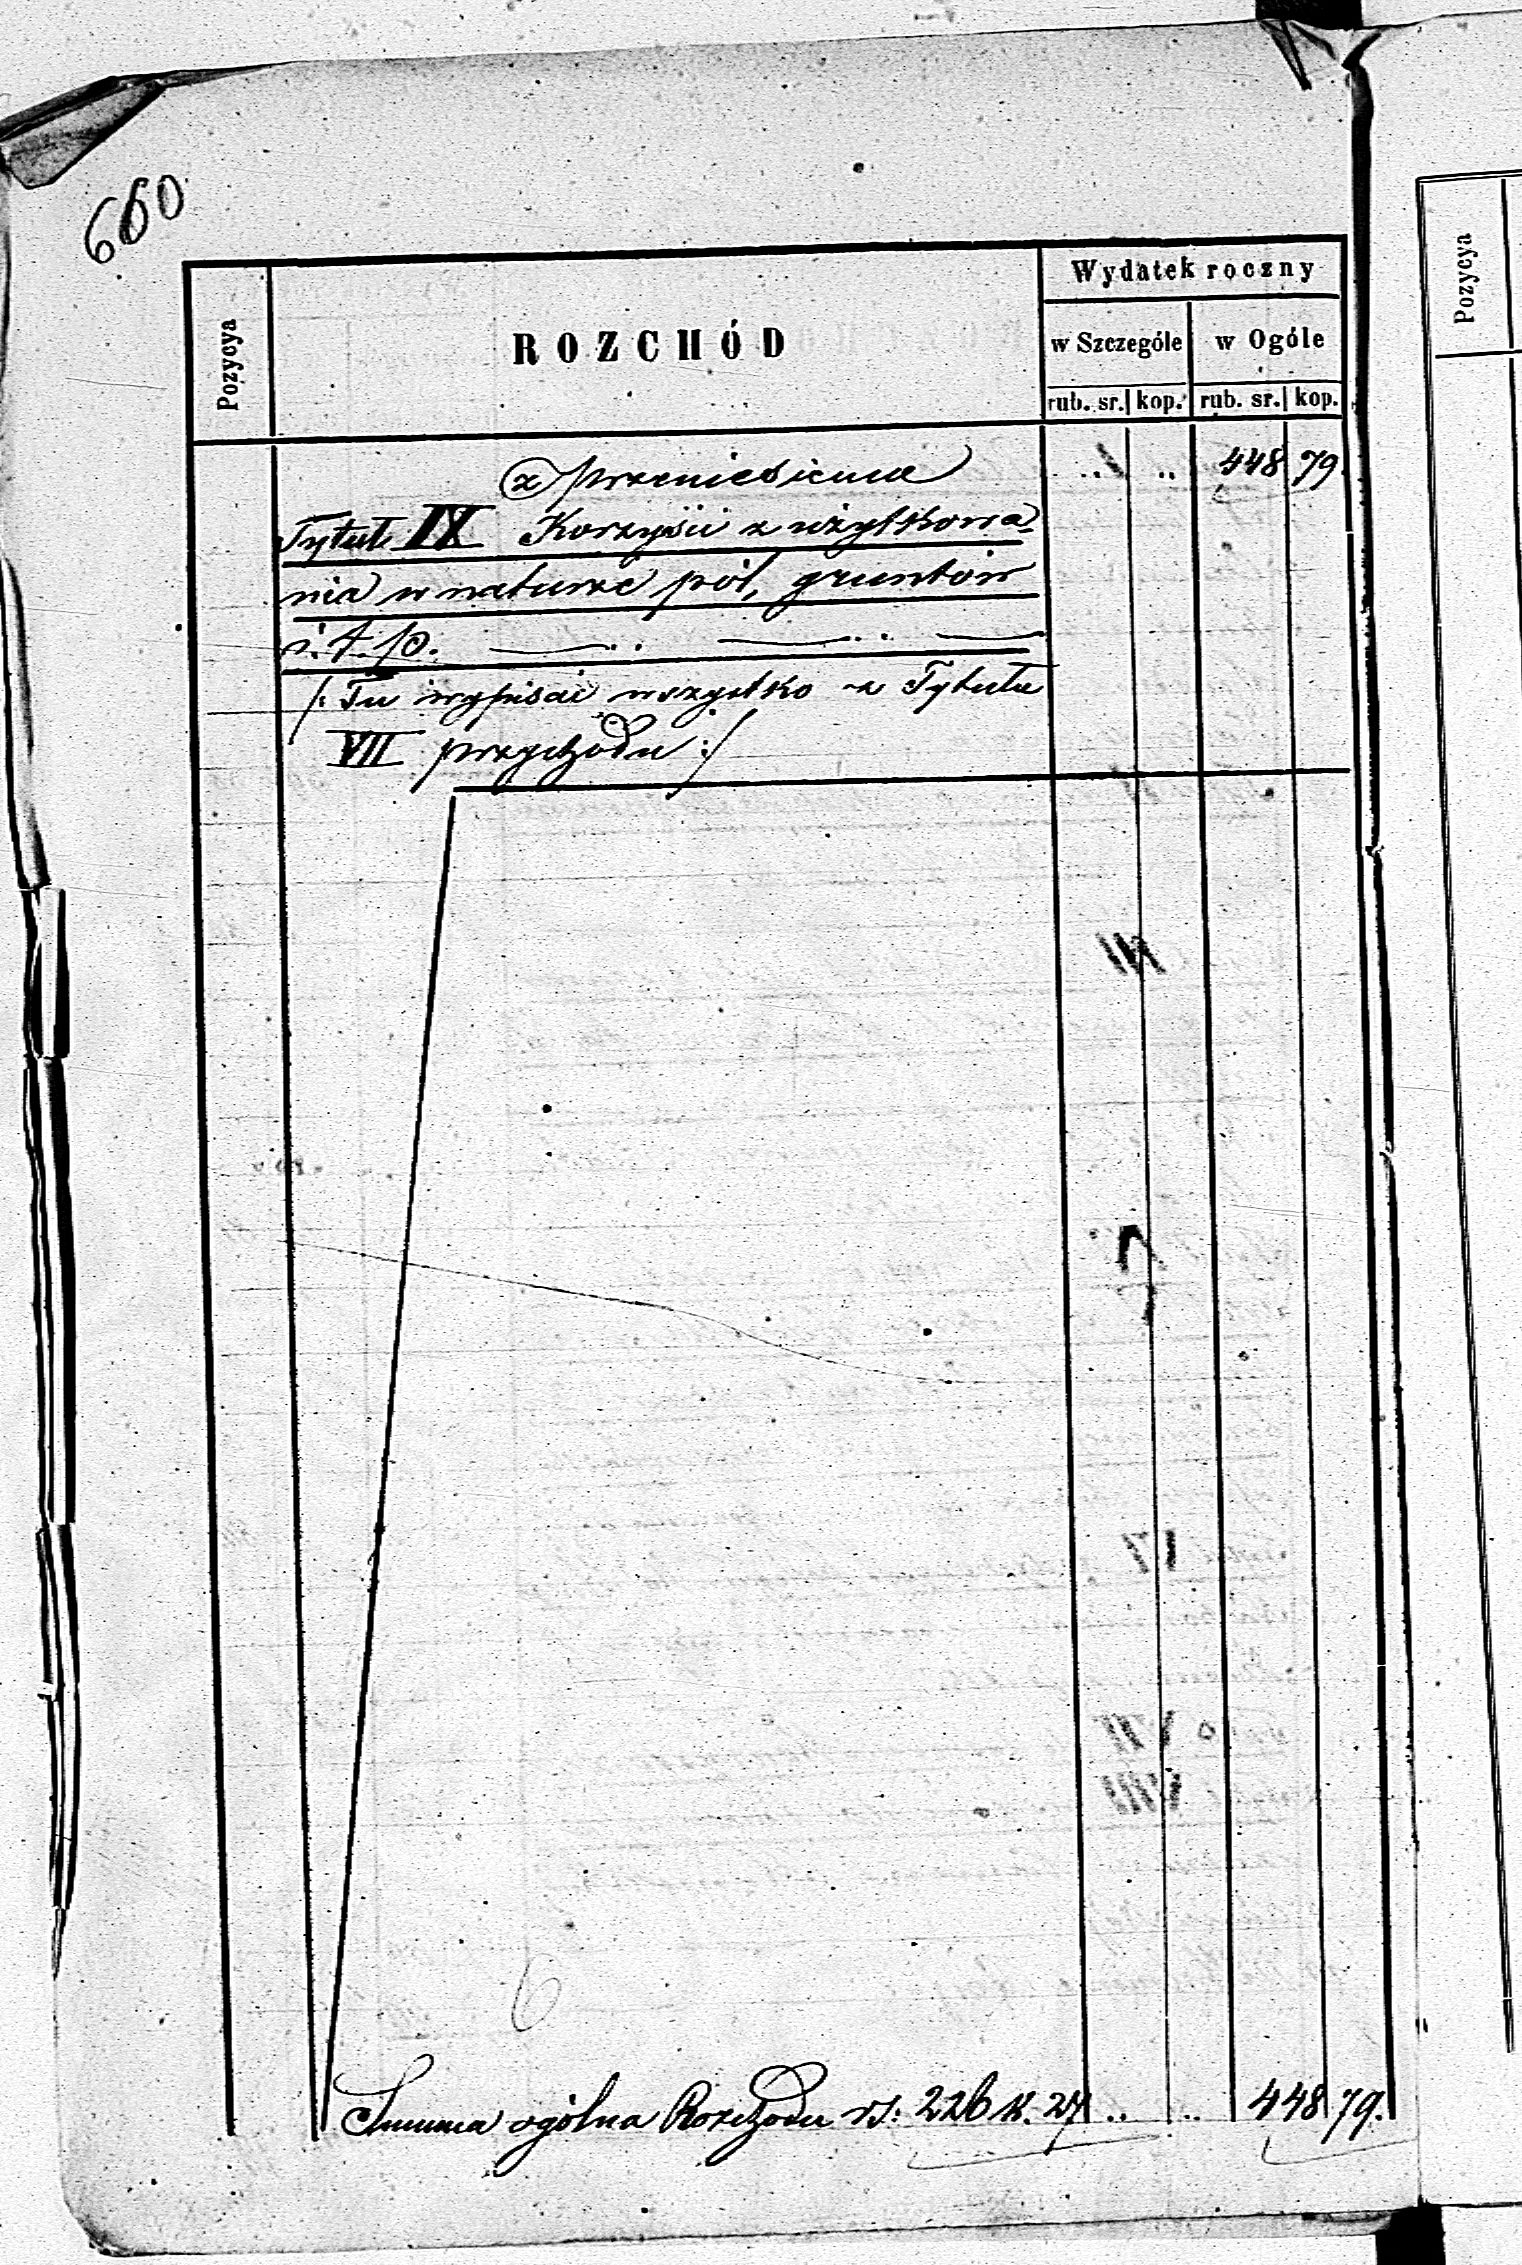 660
Pozycya
ROZCHÓD
Wydatek roczny
w Szczególe
w Ogóle
rub. sr. kop. rub. sr. kop.
z przeniesienia .. .. 448 79.
Tytuł IX Korzyści z użytkowa-
nia w naturze pól, gruntów
i.t.p.
/: Tu wypisać wszystko z Tytułu
VII przychodu :/
6
Summa ogólna Rozchodu rs: 226 k. 27 .. .. 448 79.
Pozycya